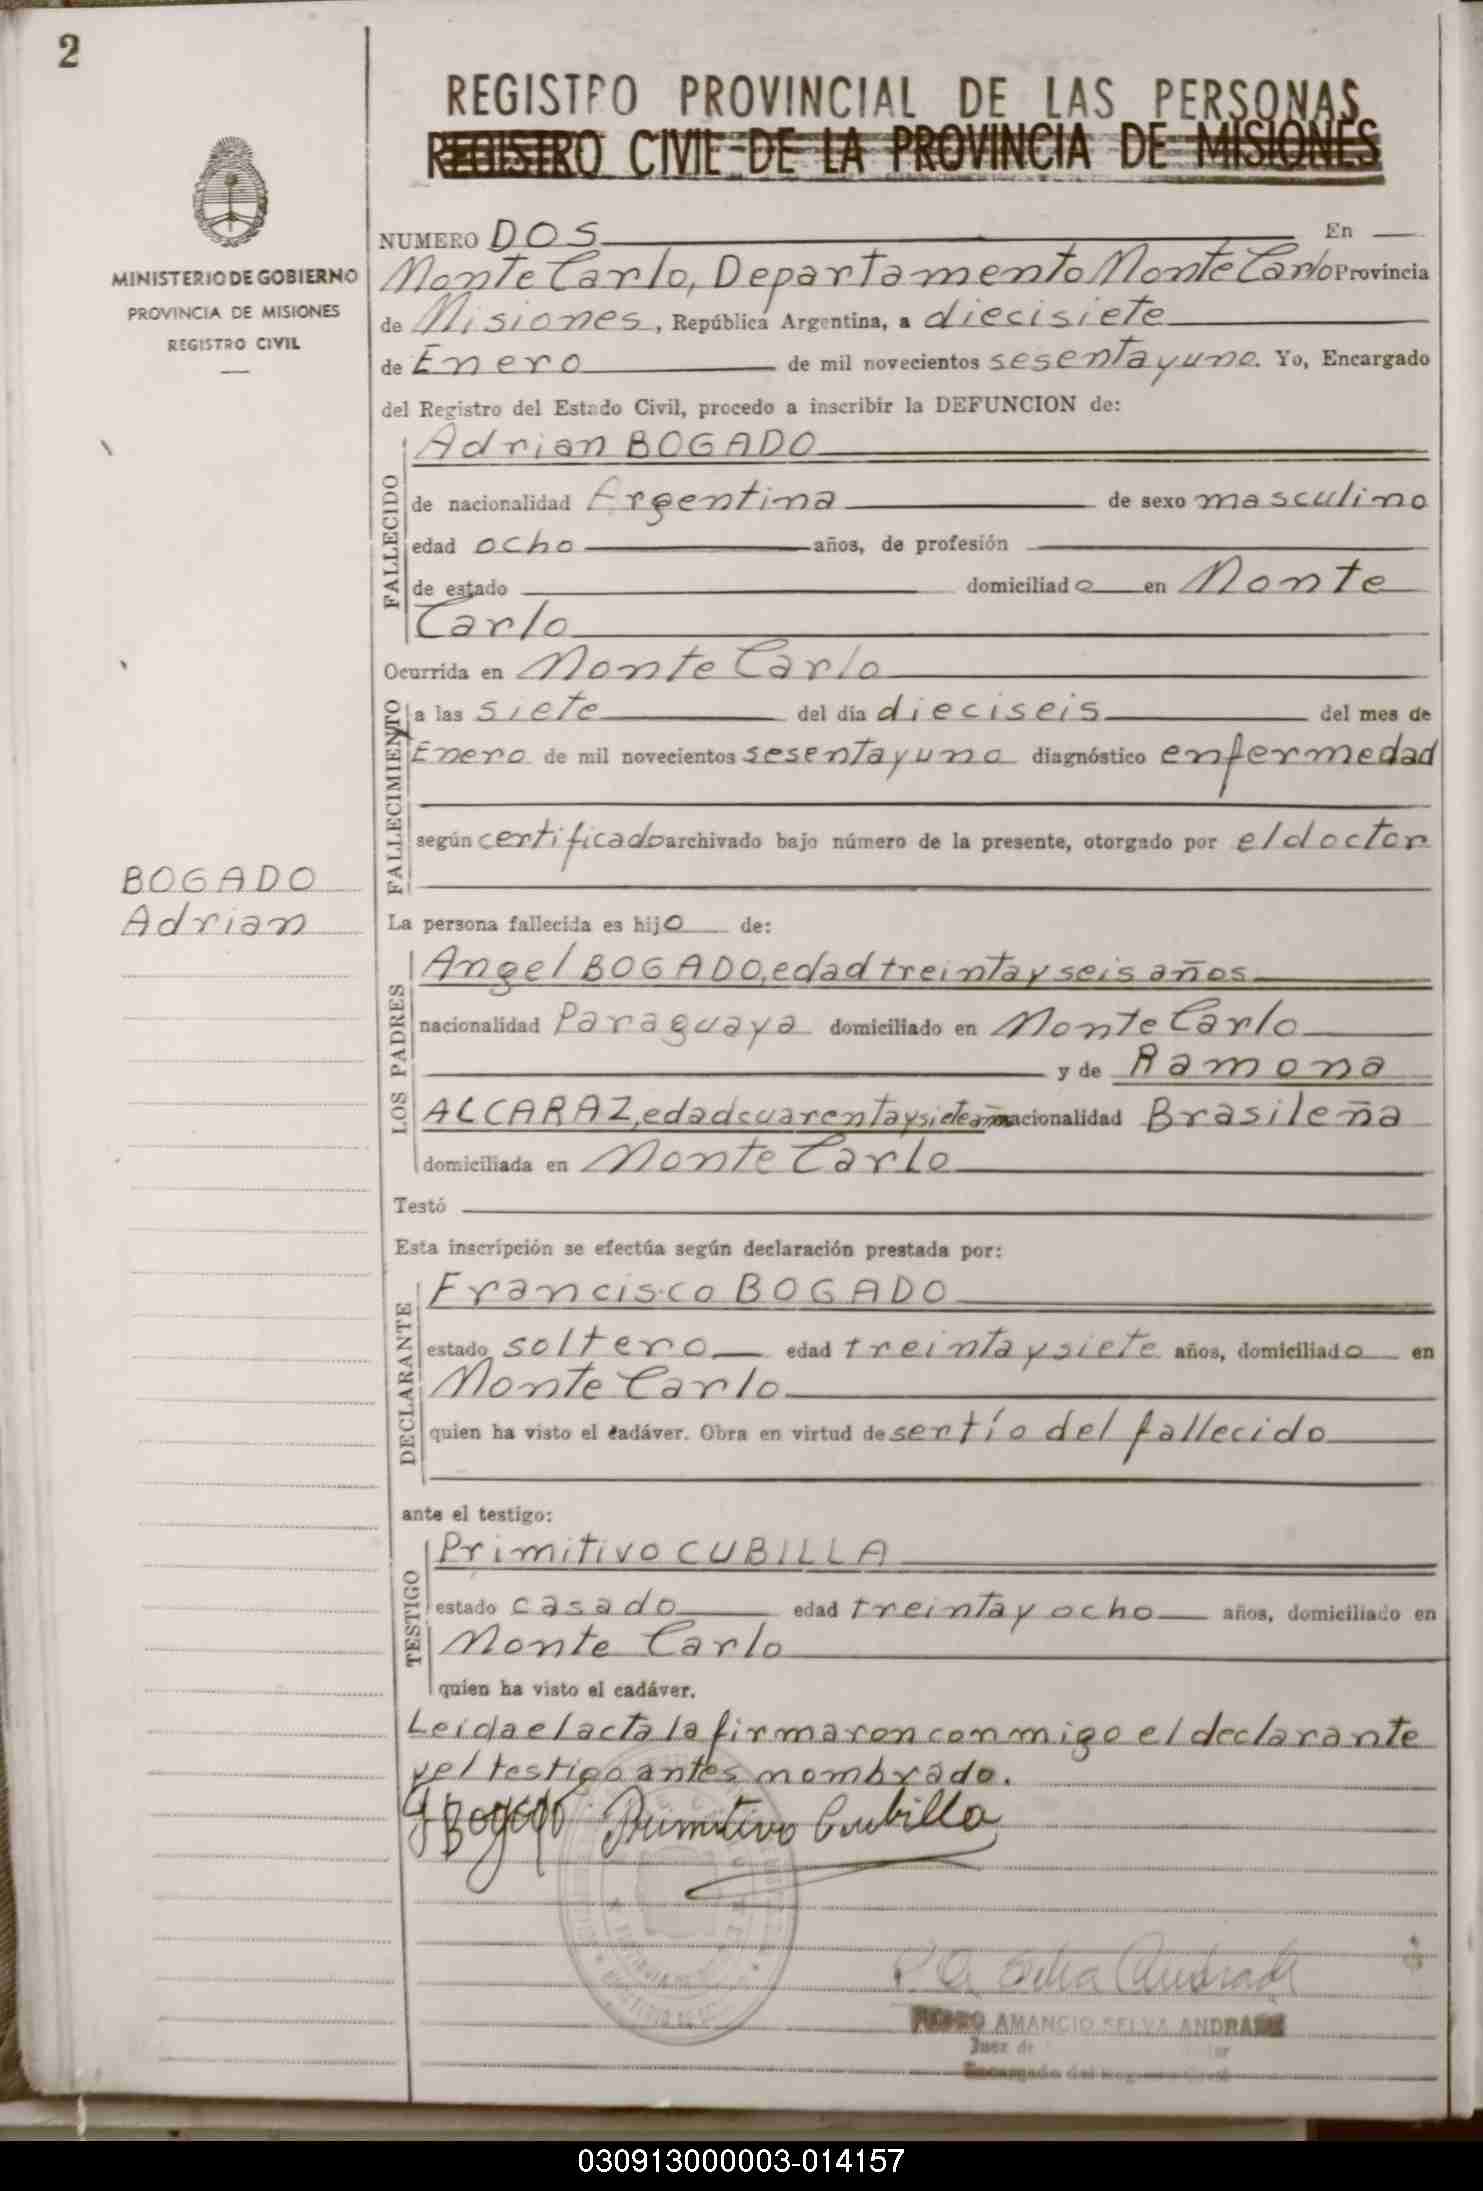 2
REGISTRO PROVINCIAL DE LAS PERSONAS
REGISTRO CIVIL DE LA PROVINCIA DE MISIONES
MINISTERIO DE GOBIERNO
PROVINCIA DE MISIONES
REGISTRO CIVIL
NUMERO DOS En
Monte Carlo, Departamento Monte Carlo Provincia
de Misiones, República Argentina, a diecisiete
de Enero de mil novecientos sesenta y uno. Yo, Encargado
del Registro del Estado Civil, procedo a inscribir la DEFUNCION de:
FALLECIDO
Adrian BOGADO
de nacionalidad Argentina de sexo masculino
edad ocho años, de profesión
de estado domiciliado en Monte
Carlo
Ocurrida en Monte Carlo
FALLECIMIENTO
a las siete del día dieciseis del mes de
Enero de mil novecientos sesenta y uno diagnóstico enfermedad
según certificado archivado bajo número de la presente, otorgado por el doctor
BOGADO
Adrian
La persona fallecida es hijo de:
LOS PADRES
Angel BOGADO, edad treinta y seis años
nacionalidad Paraguaya domiciliado en Monte Carlo
y de Ramona
ALCARAZ, edad cuarenta y siete años nacionalidad Brasileña
domiciliada en Monte Carlo
Testó
Esta inscripción se efectúa según declaración prestada por:
DECLARANTE
Francisco BOGADO
estado soltero edad treinta y siete años, domiciliado en
Monte Carlo
quien ha visto el cadáver. Obra en virtud de ser tío del fallecido
ante el testigo:
TESTIGO
Primitivo CUBILLA
estado casado edad treinta y ocho años, domiciliado en
Monte Carlo
quien ha visto el cadáver.
Leida el acta la firmaron conmigo el declarante
y el testigo antes nombrado.
F Bogado Primitivo Cubilla
P. A. Selva Andrade
PEDRO AMANCIO SELVA ANDRADE
Juez de
Encargado del Registro Civil
030913000003-014157